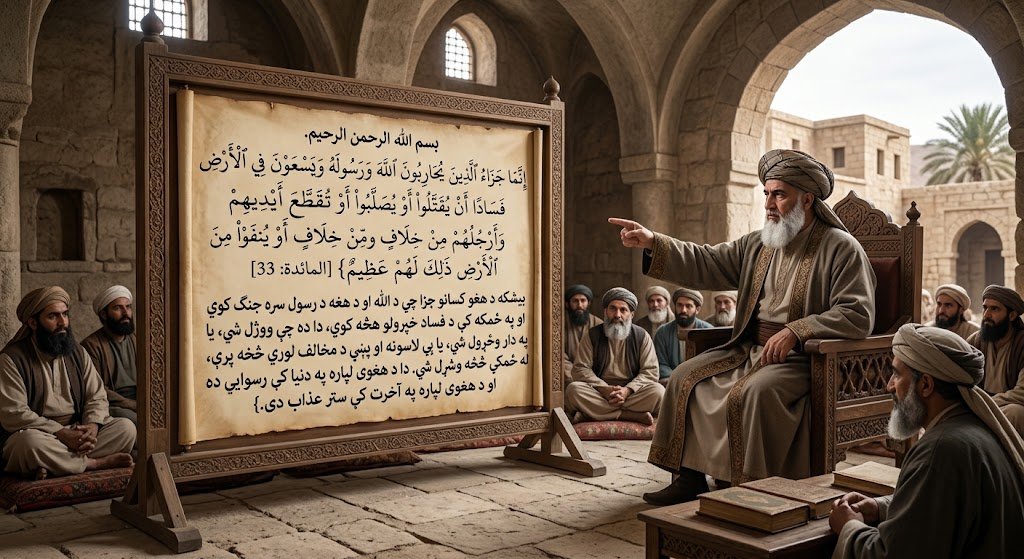 بسم الله الرحمن الرحيم.
إِنَّمَا جَزَاءُ ٱلَّذِينَ يُحَارِبُونَ ٱللَّهَ وَرَسُولَهُ وَيَسْعَوْنَ فِي ٱلْأَرْضِ
فَسَادًا أَنْ يُقَتَّلُوا۟ أَوْ يُصَلَّبُوا۟ أَوْ تُقَطَّعَ أَيْدِيهِمْ
وَأَرْجُلُهُمْ مِنْ خِلَافٍ ومِّنْ خِلَافٍ أَوْ يُنفَوْا۟ مِنَ
ٱلْأَرْضِ ذَلِكَ لَهُمْ عَظِيمٌ} [المائدة: 33]
بېشکه د هغو کسانو جزا چې د الله او د هغه د رسول سره جنګ کوي
او په ځمکه کې د فساد خپرولو هڅه کوي، دا ده چې ووژل شي، یا
په دار وځړول شي، یا یې لاسونه او پښې د مخالف لوري څخه پرې،
له ځمکې څخه وشړل شي. دا د هغوی لپاره په دنیا کې رسوایي ده
او د هغوی لپاره په آخرت کې ستر عذاب دی.}